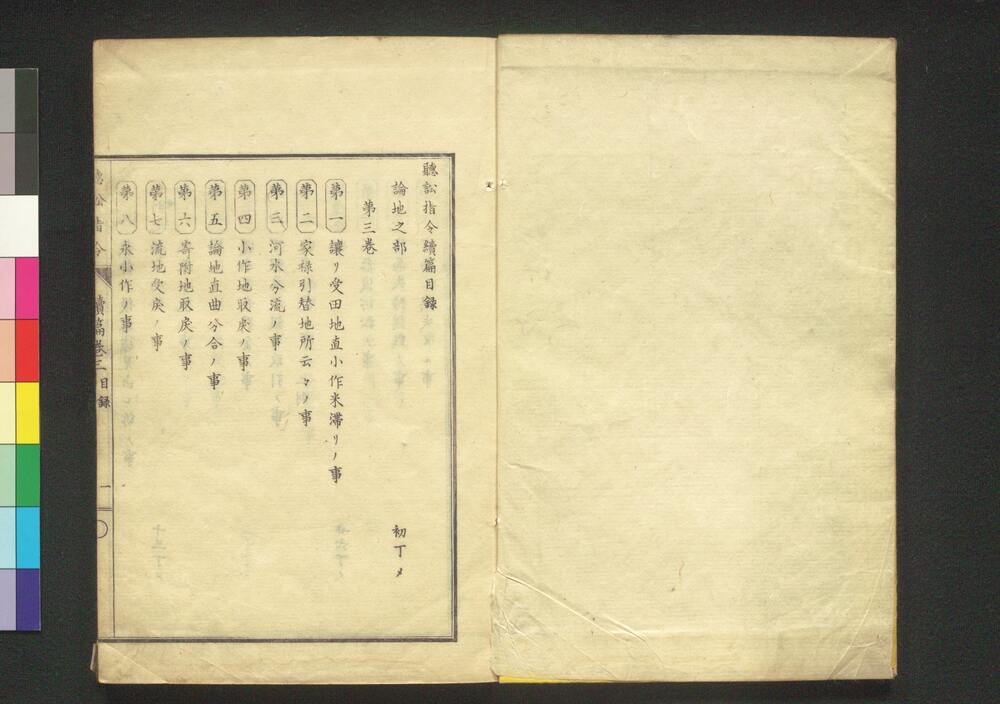 聽訟指令續篇目録
論地之部 初丁メ
第三巻
第一 讓リ受田地直小作米滯リノ事
第二 家禄引替地所云々ノ事
第三 河水分流ノ事
第四 小作地取戻ノ事
第五 論地直曲分合ノ事
第六 寄附地取戻ノ事
第七 流地受戻ノ事
第八 永小作ノ事
聽訟指令 續篇巻三 目録 一